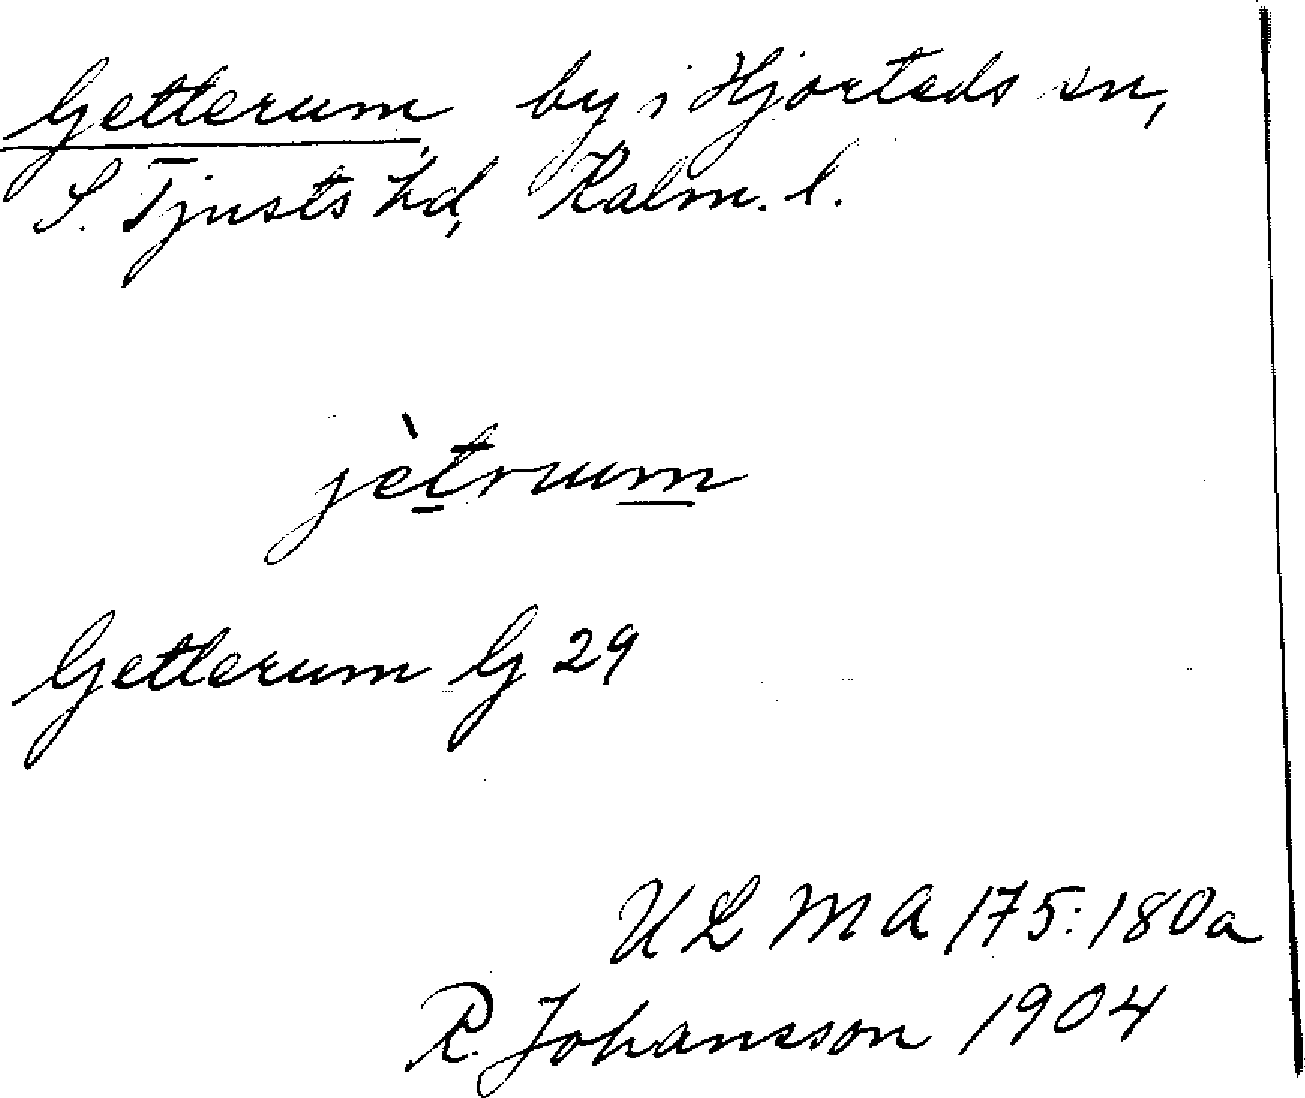 Getterum, by i Hjorteds sn,
S. Tjusts hd, Kalm. l.
jètrum
Getterum G 29
ULMA 175:180a
R. Johansson 1904